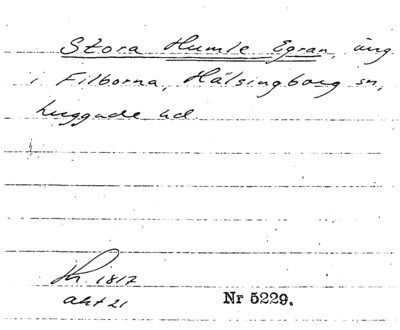 Stora Humle Egran, äng
i Filborna, Hälsingborg sn,
Luggude hd.
1817
akt 21
Nr 5229.